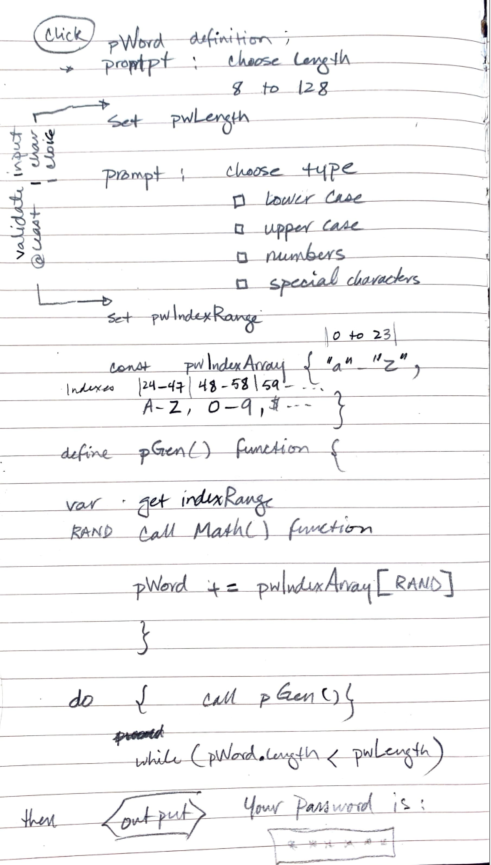 click
pWord definition ;
→ prompt : choose Length
8 to 128
Set pwLength
validate input
@least 1 char
1 choice
Prompt : choose type
□ Lower case
□ upper case
□ numbers
□ special characters
Set pwIndexRange
|0 to 23|
const pwIndexArray { "a" - "z",
Indexes |24-47| 48-58|59- ...
A-Z, 0-9, $ --- }
define pGen() function {
var . get indexRange
RAND Call Math() function
pWord += pwIndexArray[RAND]
}
do { call pGen()}
while (pWord.length < pwLength)
then <output> Your Password is:
* * * * * *